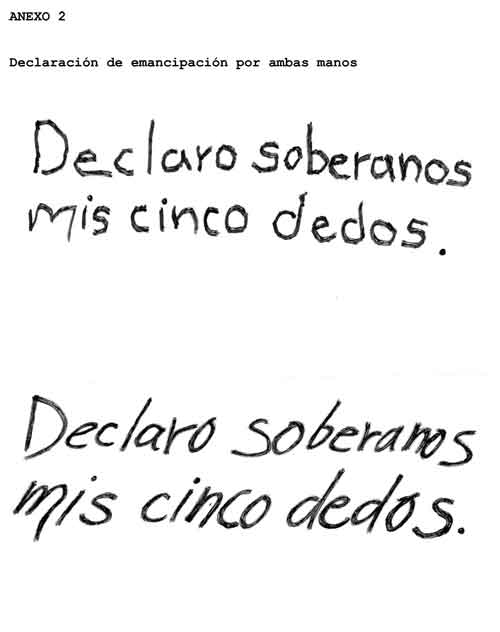 ANEXO 2
Declaración de emancipación por ambas manos
Declaro soberanos
mis cinco dedos.
Declaro soberanos
mis cinco dedos.